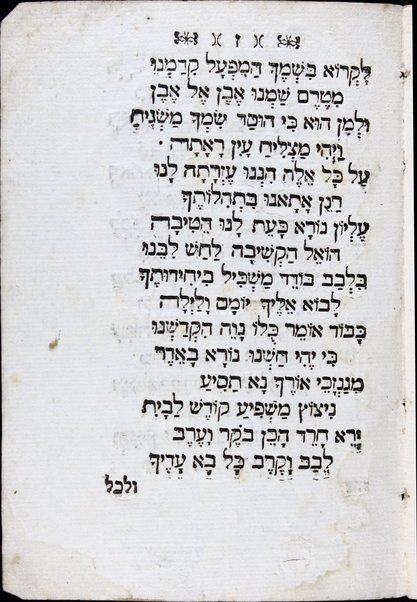 א ז א
לִקְרוֹא בְּשִׁמְךָ הַמִּפְעָל קִדַּמְנוּ
מִטֶּרֶם שַׂמְנוּ אֶבֶן אֶל אֶבֶן
וּלְמַן הוּא כִּי הוּסַד שִׁמְךָ מַשְׂגִּיחַ
וַיְהִי מַצְלִיחַ עַיִן רָאָתָה ·
עַל כָּל אֵלֶה הִנְנוּ עֶזְרָתָה לָנוּ
חַנֵּן אָתָאנוּ בִּתְהִלּוֹתֶיךָ
עֶלְיוֹן נוֹרָא כָּעֵת לָנוּ הֵטִיבָה
הוֹאֵל הַקְשִׁיבָה לַחַשׁ לִבֵּנוּ
בִּלְבַב בּוֹדֵד מַשְׂכִּיל בִּיחִידוֹתֶיךָ
לָבוֹא אֵלֶיךָ יוֹמָם וָלַיְלָה
כָּבוֹד אוֹמֵר כֻּלּוֹ נָוֶה הִקְדַּשְׁנוּ
כִּי יְהִי חַשְׁנוּ נוֹרָא בָּאֵדֶר
מִגִּנְזֵכִי אוֹרְךָ נָא תַסִּיעַ
נִיצוֹץ מַשְׁפִּיעַ קוֹדֶשׁ לַבַּיִת
יָרֵא חָרֵד הָכֵן בֹּקֶר וָעֶרֶב
לֵבָב וָקֶרֶב כָּל בָּא עָדֶיךָ
ולכל